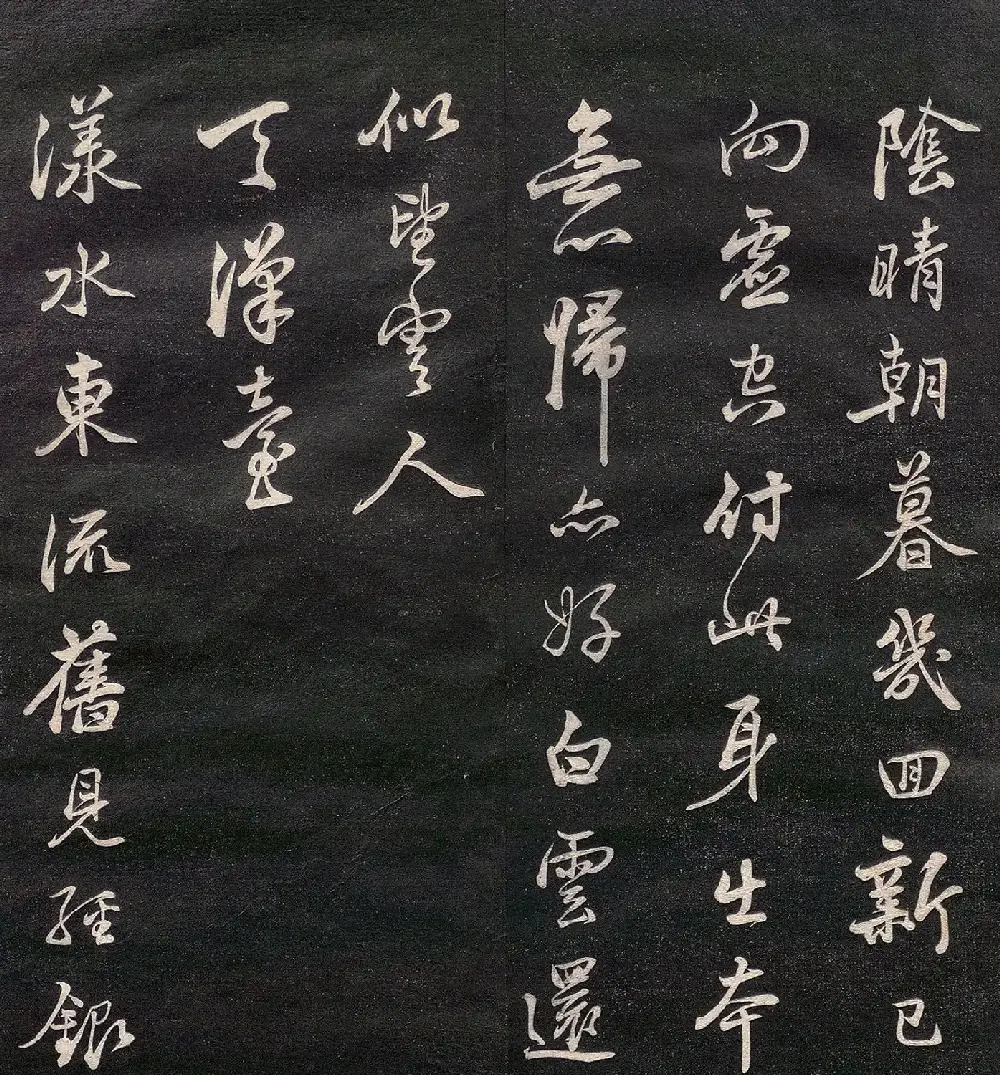 陰晴朝暮幾回新已
向虛空付此身出本
無心歸亦好白雲還
似望雲人
天漢臺
漾水東流舊見經銀